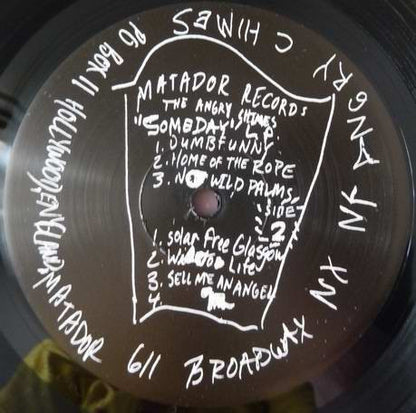 MATADOR RECORDS
THE ANGRY SHIMES
"SOMEDAY" L.P.
1. DUMBFUNNY
2. HOME OF THE ROPE
3. NO WILD PALMS
SIDE
2
1. Solar Free Glasgow
2. Life
3. SELL ME AN ANGEL
4.
C HIMES PO BOX 11 HOLLYWOOD
MATADOR 611 BROADWAY NX NY ANGRY